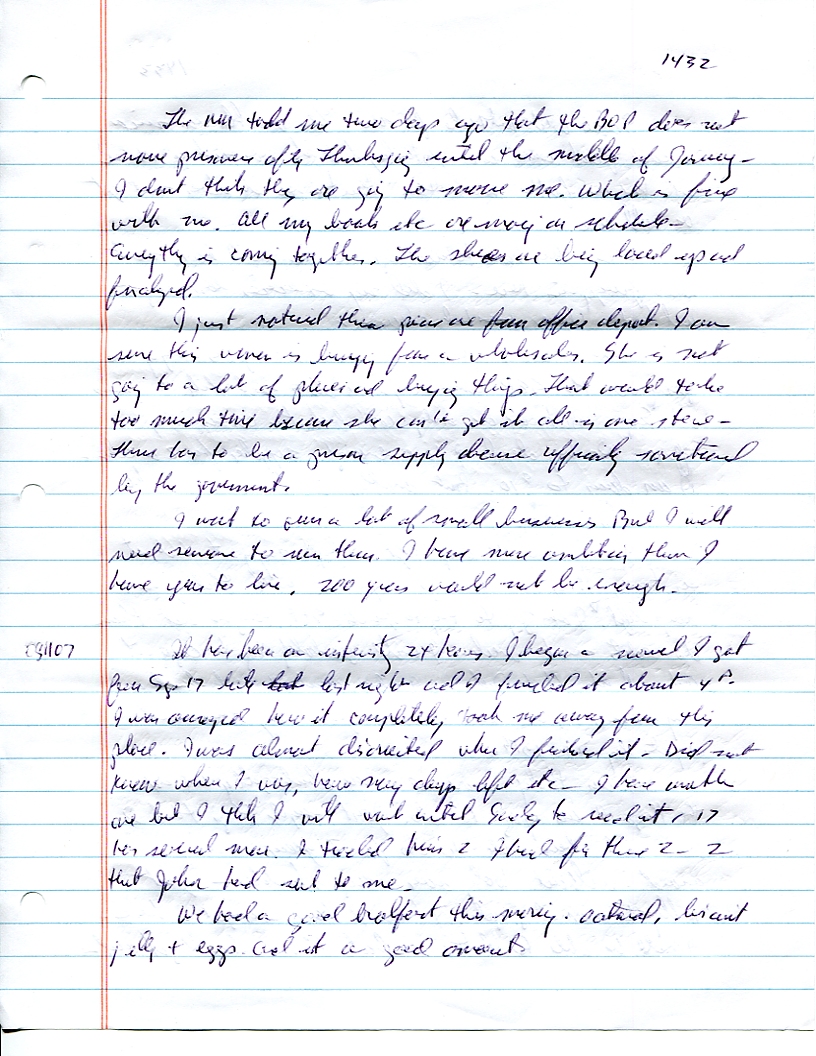 1432
The man told me two days ago that the BOP does not
move prisoners after Thanksgiving until the middle of January -
I dont think they are going to move me. Which is fine
with me. All my books etc are moving on schedule -
Everything is coming together. The shoes are being loved up and
finalized.
I just noticed these pens are from office depot. I am
sure this woman is buying from a wholesaler. She is not
going to a lot of places and buying things. That would take
too much time because she can't get it all in one store -
There has to be a prison supply officially sanctioned
by the government.
I want to own a lot of small businesses But I will
need someone to run them. I have more ambition than I
have years to live. 200 years would not be enough.
It has been an interesting 24 hours. I began a novel I got
from Sgo 17 last night and I finished it about 4 P.
I was amazed how it completely took me away from this
place. I was almost disoriented when I finished it - Did not
know where I was, how many days left etc - I have another
one but I think I will wait until Sunday to read it, 17
has several more. I traded him 2 I had for these 2 - 2
that John had sent to me -
We had a good breakfast this morning. oatmeal, biscuit
jelly + eggs and it a good amount